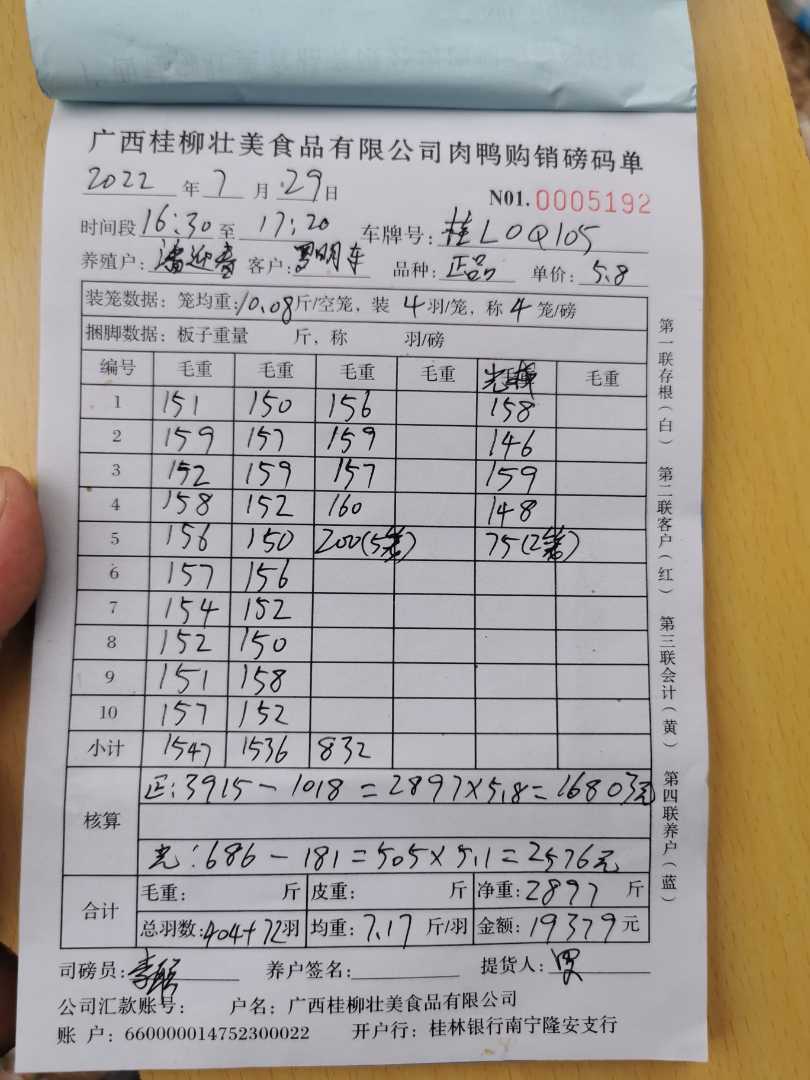 广西桂柳壮美食品有限公司肉鸭购销磅码单
2022 年 7 月 29 日 N01. 0005192
时间段 16:30 至 17:20 车牌号: 桂L0Q105
养殖户: 潘迎春 客户: 罗明车 品种: 正品 单价: 5.8
装笼数据: 笼均重: 10.08 斤/空笼, 装 4 羽/笼, 称 4 笼/磅
捆脚数据: 板子重量 斤, 称 羽/磅
编号 毛重 毛重 毛重 毛重 光 毛重
1 151 150 156 158
2 159 157 159 146
3 152 159 157 159
4 158 152 160 148
5 156 150 200(5笼) 75(2笼)
6 157 156
7 154 152
8 152 150
9 151 158
10 157 152
小计 1547 1536 832
核算 正: 3915 - 1018 = 2897 × 5.8 = 16803元
光: 686 - 181 = 505 × 5.1 = 2576元
合计 毛重: 斤 皮重: 斤 净重: 2897 斤
总羽数: 404+72 羽 均重: 7.17 斤/羽 金额: 19379 元
司磅员: 养户签名: 提货人:
公司汇款账号: 户名: 广西桂柳壮美食品有限公司
账 户: 660000014752300022 开户行: 桂林银行南宁隆安支行
第一联存根(白) 第二联客户(红) 第三联会计(黄) 第四联养户(蓝)